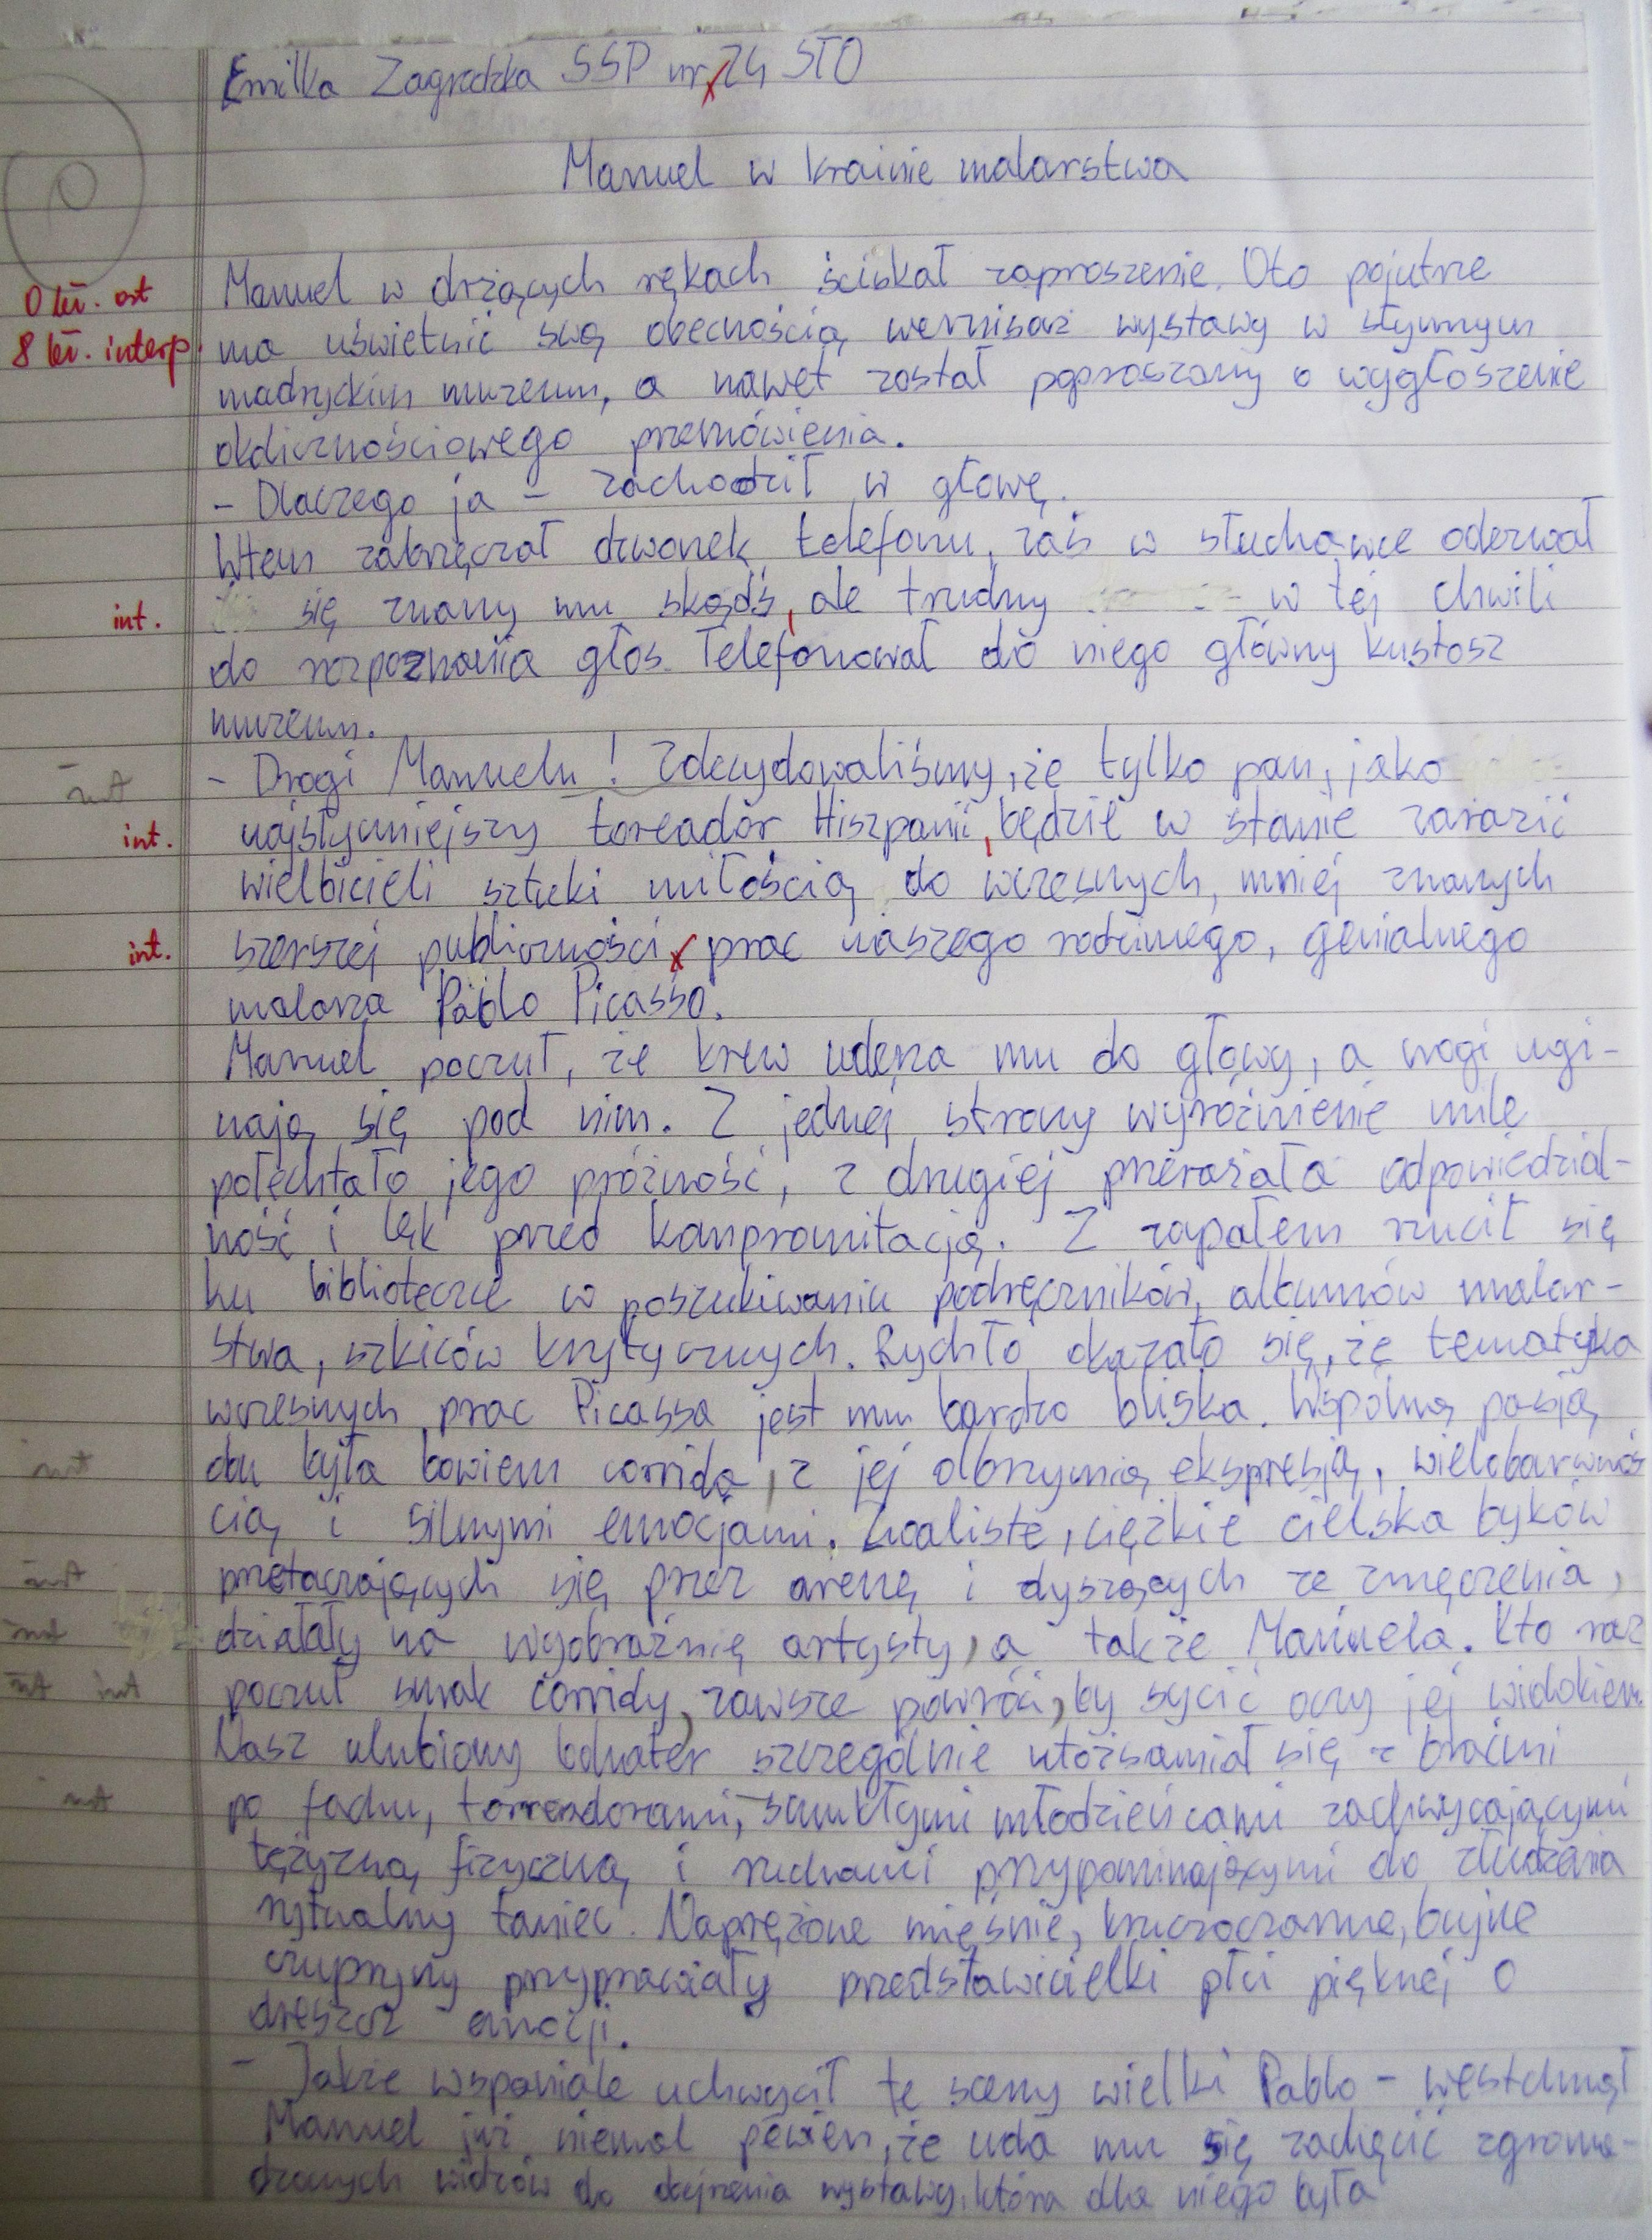 Emilka Zagrodzka SSP nr 24 STO
Manuel w krainie malarstwa
0 
8 interp.
Manuel w drżących rękach ściskał zaproszenie. Oto pojutrze
ma uświetnić swą obecnością wernisaż wystawy w słynnym
madryckim muzeum, a nawet został poproszony o wygłoszenie
okolicznościowego przemówienia.
- Dlaczego ja - zachodził w głowę.
Wtem zabrzęczał dzwonek telefonu, zaś w słuchawce oderwał
int. się znany mu skądś, ale trudny w tej chwili
do rozpoznania głos. Telefonował do niego główny kustosz
muzeum.
int - Drogi Manuelu! Zdecydowaliśmy, że tylko pan, jako
int. najsłynniejszy toreador Hiszpanii, będzie w stanie zarazić
wielbicieli sztuki miłością do wczesnych, mniej znanych
int. szerszej publiczności prac naszego rodzimego, genialnego
malarza Pablo Picasso.
Manuel poczuł, że krew uderza mu do głowy, a nogi ugi-
nają się pod nim. Z jednej strony wyróżnienie mile
połechtało jego próżność, z drugiej przerażała odpowiedzial-
ność i lęk przed kompromitacją. Z zapałem rzucił się
ku biblioteczce w poszukiwaniu podręczników, albumów malar-
stwa, szkiców krytycznych. Rychło okazało się, że tematyka
wczesnych prac Picassa jest mu bardzo bliska. Wspólną pasją
int obu była bowiem corrida, z jej olbrzymią ekspresją, wielobarwnoś
cią i silnymi emocjami. Zwaliste, ciężkie cielska byków
int przetaczających się przez arenę i dyszących ze zmęczenia,
int działały na wyobraźnię artysty, a także Manuela. Kto raz
int int poczuł smak corridy, zawsze powróci, by sycić oczy jej widokiem.
Nasz ulubiony bohater szczególnie utożsamiał się z braćmi
int po fachu, torreadorami, smukłymi młodzieńcami zachwycającymi
tężyzną fizyczną i ruchami przypominającymi do złudzenia
rytualny taniec. Naprężone mięśnie, kruczoczarne, bujne
czupryny przyprawiały przedstawicielki płci pięknej o
dreszcz emocji.
- Jakże wspaniale uchwycił te sceny wielki Pablo - westchnął
Manuel już niemal pewien, że uda mu się zachęcić zgroma-
dzonych widzów do obejrzenia wystawy, która dla niego była